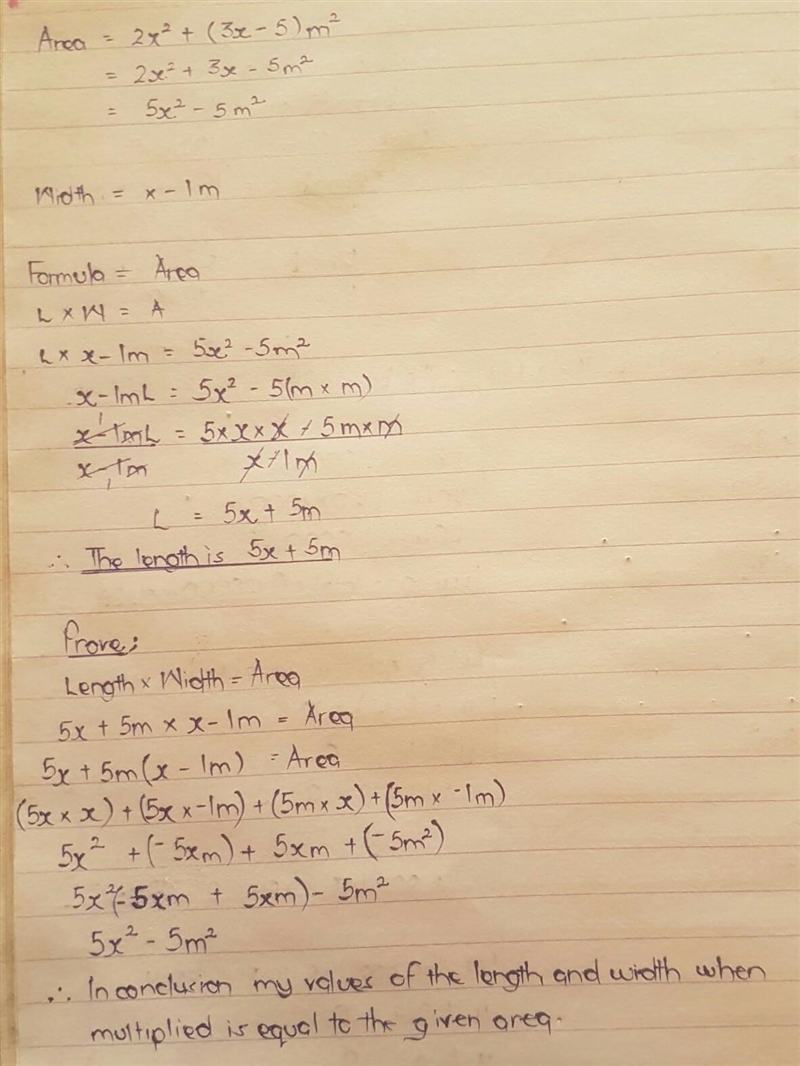 Area = 2x² + (3x - 5)m²
= 2x² + 3x - 5m²
= 5x² - 5m²
Width = x - 1m
Formula = Area
L × W = A
L × x - 1m = 5x² - 5m²
x - 1mL = 5x² - 5(m × m)
x - 1mL = 5 × x × x - 5m × m
x - 1m x - 1m
L = 5x + 5m
∴ The length is 5x + 5m
Prove:
Length × Width = Area
5x + 5m × x - 1m = Area
5x + 5m(x - 1m) = Area
(5x × x) + (5x × -1m) + (5m × x) + (5m × -1m)
5x² + (-5xm) + 5xm + (-5m²)
5x² (-5xm + 5xm) - 5m²
5x² - 5m²
∴ In conclusion my values of the length and width when
multiplied is equal to the given area.